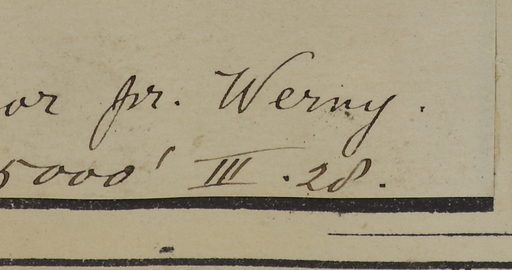 or pr. Werny.
5000' III. 28.